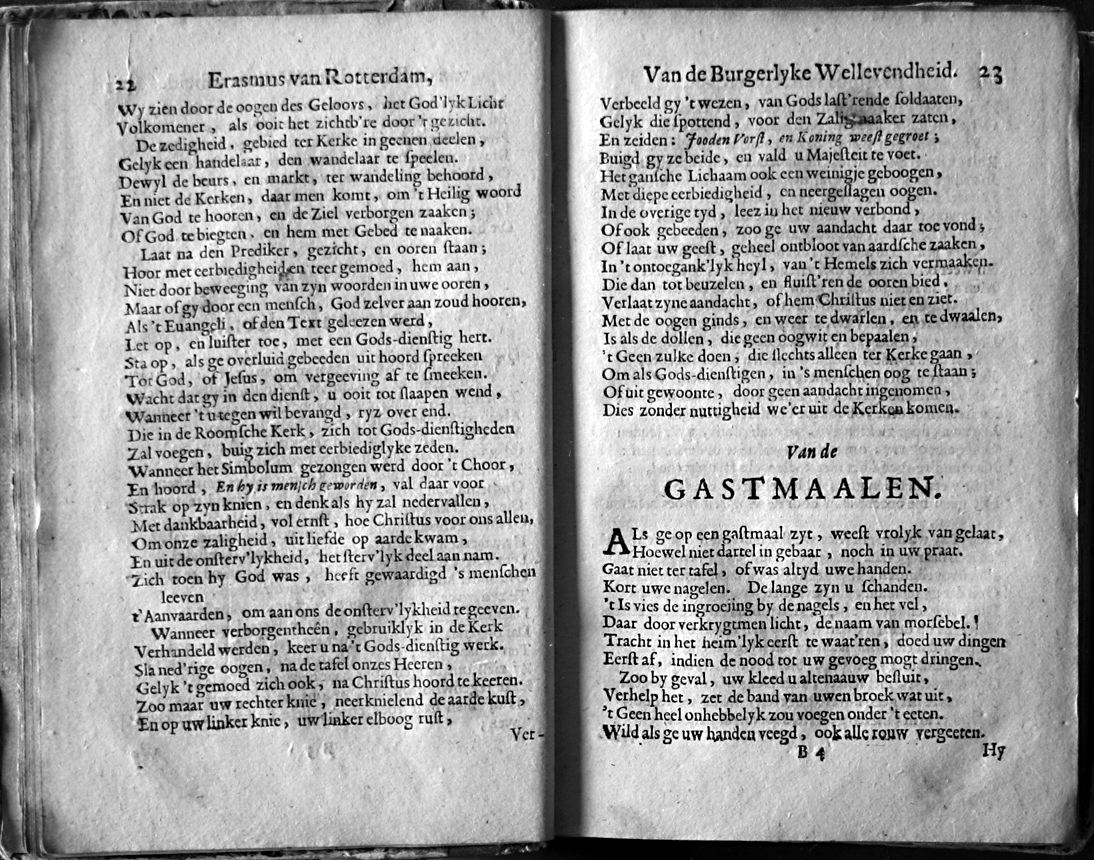 22 Erasmus van Rotterdam,
Wy zien door de oogen des Geloovs, het God'lyk Licht
Volkomener, als ooit het zichtb're door 't gezicht.
De zedigheid, gebied ter Kerke in geenen deelen,
Gelyk een handelaar, den wandelaar te speelen.
Dewyl de beurs, en markt, ter wandeling behoord,
En niet de Kerken, daar men komt, om 't Heilig woord
Van God te hooren, en de Ziel verborgen zaaken;
Of God te biegten, en hem met Gebed te naaken.
Laat na den Prediker, gezicht, en ooren staan;
Hoor met eerbiedigheid en teer gemoed, hem aan,
Niet door beweeging van zyn woorden in uwe ooren,
Maar of gy door een mensch, God zelver aan zoud hooren,
Als 't Euangeli, of den Text geleezen werd,
Let op, en luister toe, met een Gods-dienstig hert.
Sta op, als ge overluid gebeeden uit hoord spreeken
Tot God, of Jesus, om vergeeving af te smeeken.
Wacht dat gy in den dienst, u ooit tot slaapen wend,
Wanneer 't u tegen wil bevangd, ryz over end.
Die in de Roomsche Kerk, zich tot Gods-dienstigheden
Zal voegen, buig zich met eerbiediglyke zeden.
Wanneer het Simbolum gezongen werd door 't Choor,
En hoord, En hy is mensch geworden, val daar voor
Strak op zyn knien, en denk als hy zal nedervallen,
Met dankbaarheid, vol ernst, hoe Christus voor ons allen,
Om onze zaligheid, uit liefde op aarde kwam,
En uit de onsterv'lykheid, het sterv'lyk deel aan nam.
Zich toen hy God was, heeft gewaardigd 's menschen
leeven
t'Aanvaarden, om aan ons de onsterv'lykheid te geeven.
Wanneer verborgentheên, gebruiklyk in de Kerk
Verhandeld werden, keer u na 't Gods-dienstig werk.
Sla ned'rige oogen, na de tafel onzes Heeren,
Gelyk 't gemoed zich ook, na Christus hoord te keeren.
Zoo maar uw rechter knie, neerknielend de aarde kust,
En op uw linker knie, uw linker elboog rust,
Ver-
Van de Burgerlyke Wellevendheid. 23
Verbeeld gy 't wezen, van Gods last'rende soldaaten,
Gelyk die spottend, voor den Zaligmaaker zaten,
En zeiden: Jooden Vorst, en Koning weest gegroet;
Buigd gy ze beide, en vald u Majesteit te voet.
Het gansche Lichaam ook een weinigje geboogen,
Met diepe eerbiedigheid, en neergeslagen oogen.
In de overige tyd, leez in het nieuw verbond,
Of ook gebeeden, zoo ge uw aandacht daar toe vond;
Of laat uw geest, geheel ontbloot van aardsche zaaken,
In 't ontoegank'lyk heyl, van 't Hemels zich vermaaken.
Die dan tot beuzelen, en fluist'ren de ooren bied,
Verlaat zyne aandacht, of hem Christus niet en ziet.
Met de oogen ginds, en weer te dwarlen, en te dwaalen,
Is als de dollen, die geen oogwit en bepaalen,
't Geen zulke doen, die slechts alleen ter Kerke gaan,
Om als Gods-dienstigen, in 's menschen oog te staan;
Of uit gewoonte, door geen aandacht ingenomen,
Dies zonder nuttigheid we'er uit de Kerken komen.
Van de
GASTMAALEN.
ALs ge op een gastmaal zyt, weest vrolyk van gelaat,
Hoewel niet dartel in gebaar, noch in uw praat.
Gaat niet ter tafel, of was altyd uwe handen.
Kort uwe nagelen. De lange zyn u schanden.
't Is vies de ingroejing by de nagels, en het vel,
Daar door verkrygtmen licht, de naam van morsebel.!
Tracht in het heim'lyk eerst te waat'ren, doed uw dingen
Eerst af, indien de nood tot uw gevoeg mogt dringen.
Zoo by geval, uw kleed u altenaauw besluit,
Verhelp het, zet de band van uwen broek wat uit,
't Geen heel onhebbelyk zou voegen onder 't eeten.
Wild als ge uw handen veegd, ook alle rouw vergeeten.
B 4 Hy